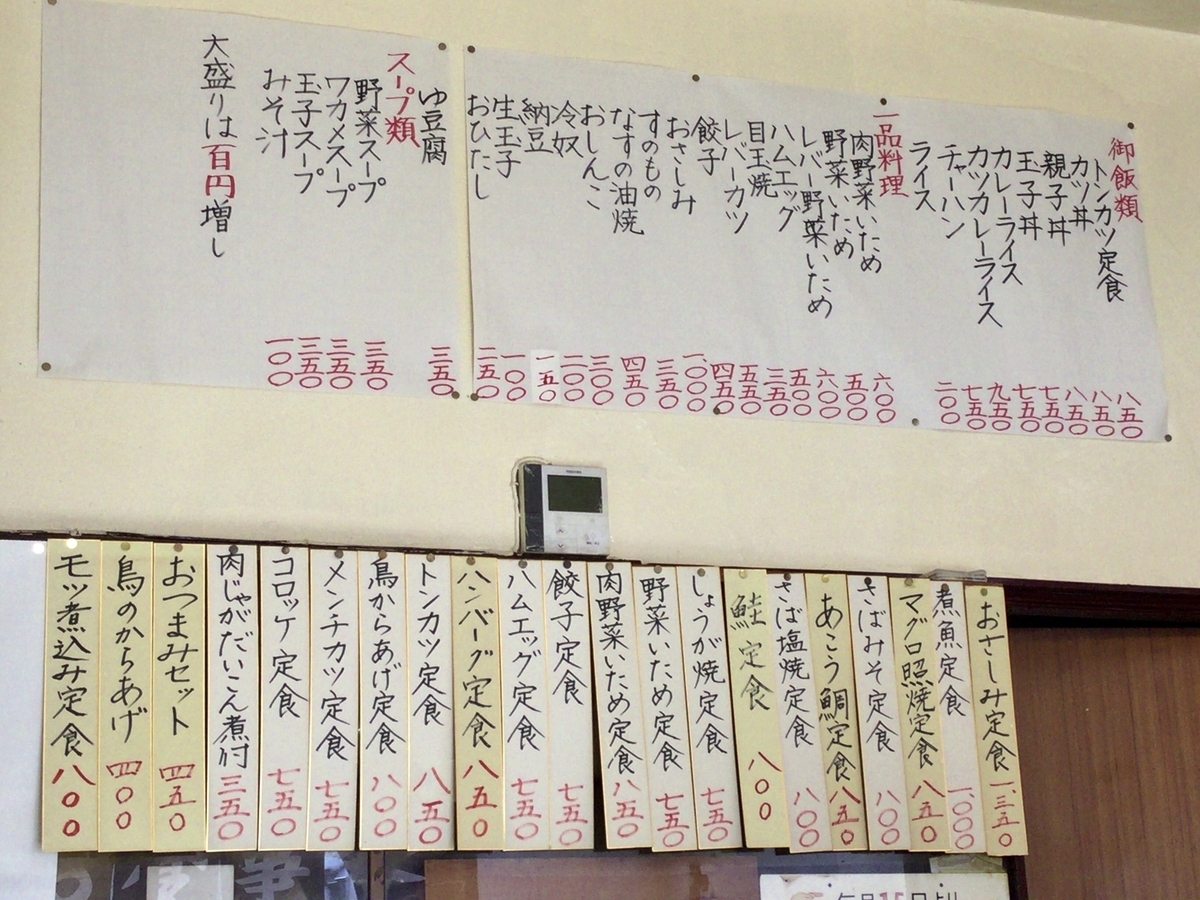 御飯類
トンカツ定食 八五〇
カツ丼 八五〇
親子丼 八五〇
玉子丼 七五〇
カレーライス 七五〇
カツカレーライス 九五〇
チャーハン 七五〇
ライス 二〇〇
一品料理
肉野菜いため 六〇〇
野菜いため 五〇〇
レバー野菜いため 六〇〇
ハムエッグ 五〇〇
目玉焼 三五〇
レバーカツ 五五〇
餃子 四五〇
おさしみ 一、〇〇〇
すのもの 三五〇
なすの油焼 四五〇
おしんこ 三〇〇
冷奴 二〇〇
納豆 一五〇
生玉子 一〇〇
おひたし 二五〇
ゆ豆腐 三五〇
スープ類
野菜スープ 三五〇
ワカメスープ 三五〇
玉子スープ 三五〇
みそ汁 一〇〇
大盛りは百円増し
おさしみ定食 一、三五〇
煮魚定食 一、〇〇〇
マグロ照焼定食 八五〇
さばみそ定食 八〇〇
あこう鯛定食 八五〇
さば塩焼定食 八〇〇
鮭定食 八〇〇
しょうが焼定食 七五〇
野菜いため定食 七五〇
肉野菜いため定食 八五〇
餃子定食 七五〇
ハムエッグ定食 七五〇
ハンバーグ定食 八五〇
トンカツ定食 八五〇
鳥からあげ定食 八〇〇
メンチカツ定食 七五〇
コロッケ定食 七五〇
肉じゃがだいこん煮付 三五〇
おつまみセット 四五〇
鳥のからあげ 四〇〇
モツ煮込み定食 八〇〇